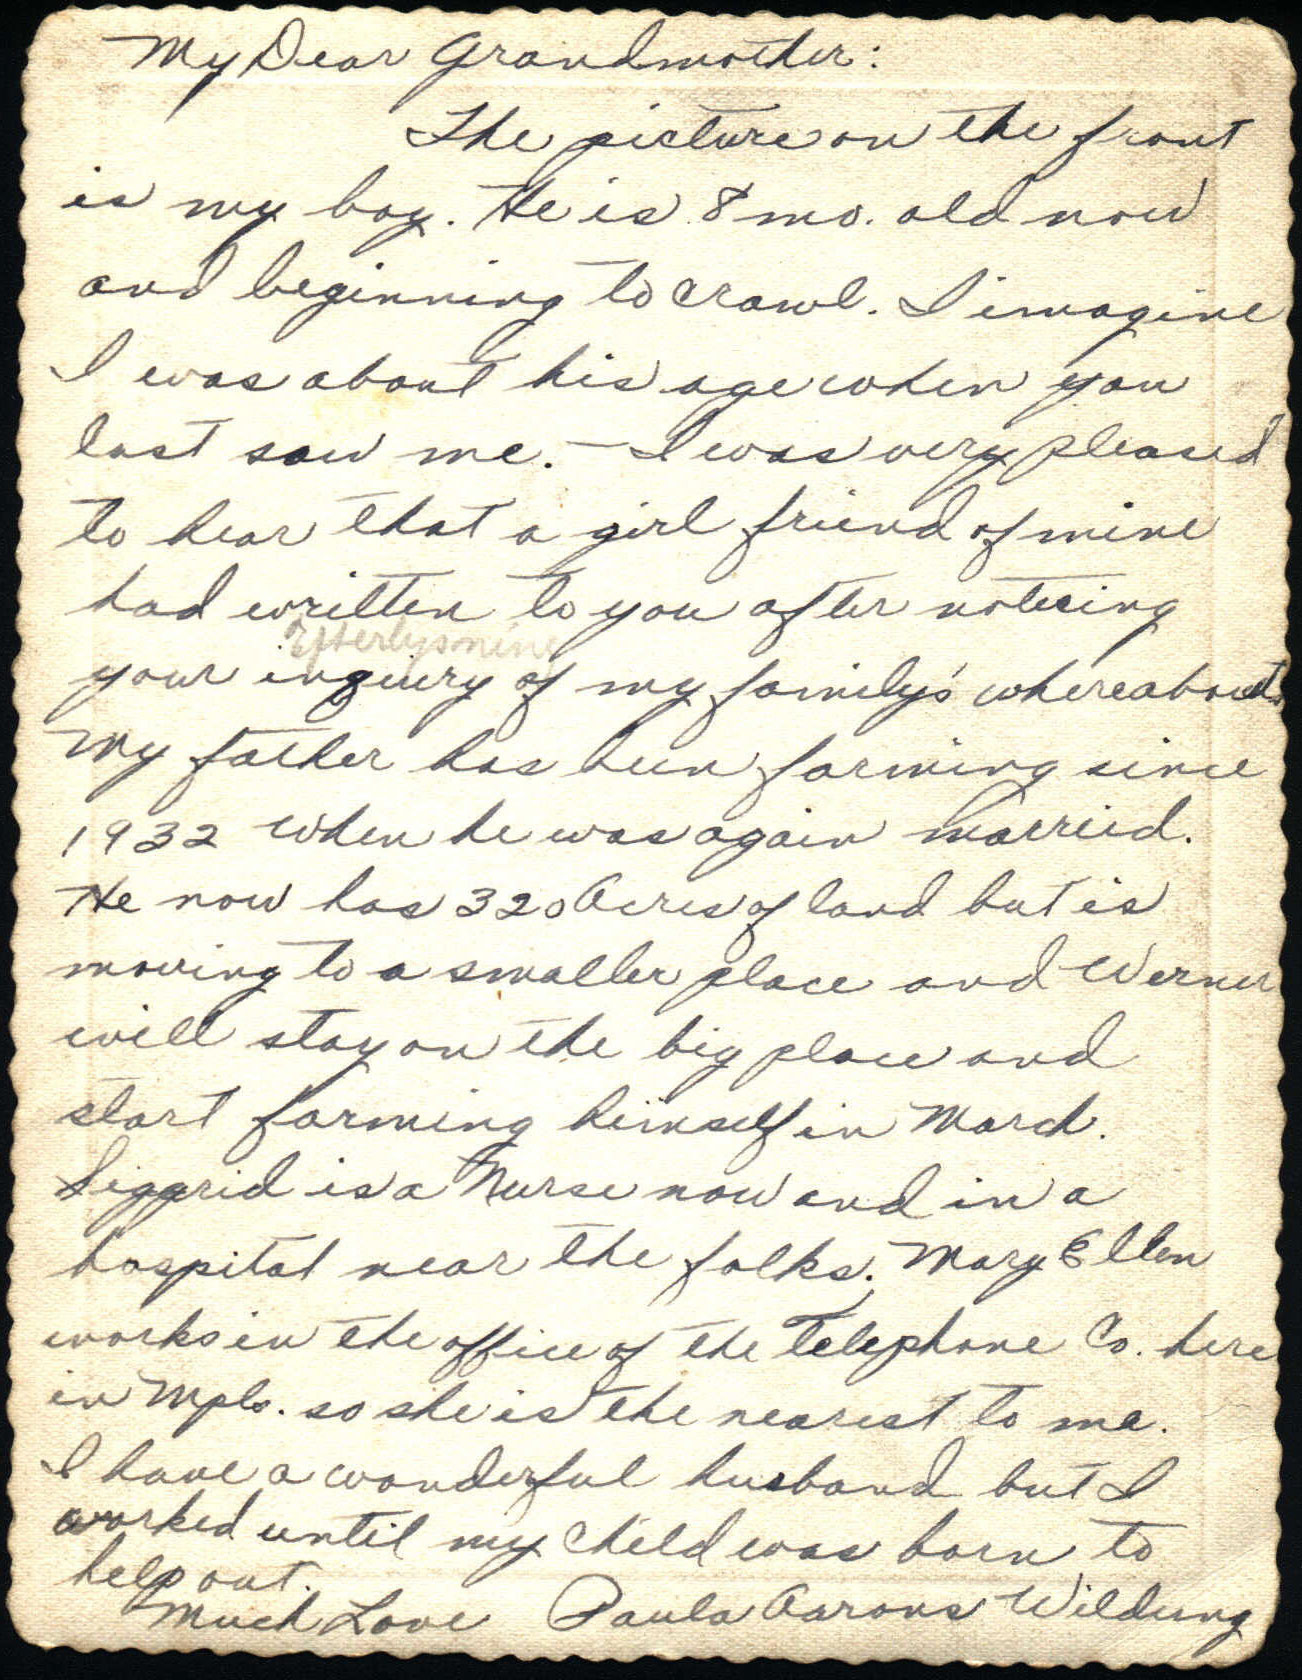 My Dear Grandmother:
The picture on the front
is my boy. He is 8 mo. old now
and beginning to crawl. I imagine
I was about his age when you
last saw me. — I was very pleased
to hear that a girl friend of mine
had written to you after noticing
Efterlysning
your inquiry of my family's whereabouts.
My father has been farming since
1932 when he was again married.
He now has 320 Acres of land but is
moving to a smaller place and Werner
will stay on the big place and
start farming himself in March.
Siggrid is a Nurse now and in a
hospital near the folks. Mary Ellen
works in the office of the Telephone Co. here
in Mpls. so she is the nearest to me.
I have a wonderful husband but I
worked until my child was born to
help out.
Much Love Paula Aarons Wildung